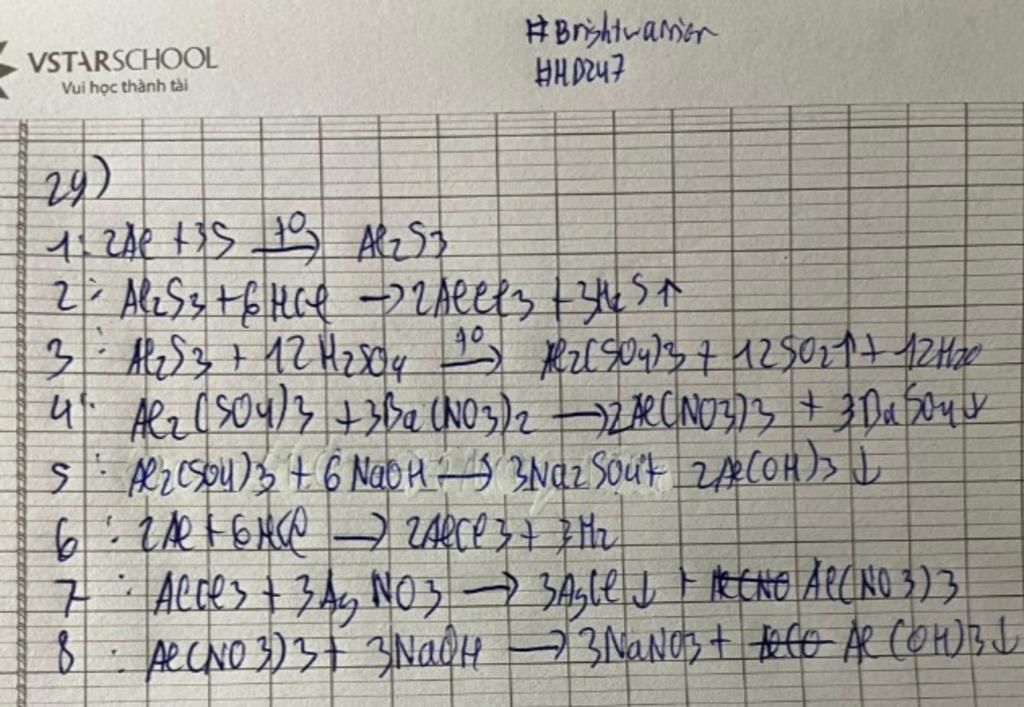 VSTARSCHOOL
Vui học thành tài
#Brightwarrior
#HD247
29)
1: 2Al + 3S —t⁰→ Al2S3
2: Al2S3 + 6HCl → 2AlCl3 + 3H2S↑
3: Al2S3 + 12H2SO4 —t⁰→ Al2(SO4)3 + 12SO2↑ + 12H2O
4: Al2(SO4)3 + 3Ba(NO3)2 → 2Al(NO3)3 + 3BaSO4↓
5: Al2(SO4)3 + 6NaOH → 3Na2SO4 + 2Al(OH)3↓
6: 2Al + 6HCl → 2AlCl3 + 3H2
7: AlCl3 + 3AgNO3 → 3AgCl↓ + Al(NO3)3
8: Al(NO3)3 + 3NaOH → 3NaNO3 + Al(OH)3↓